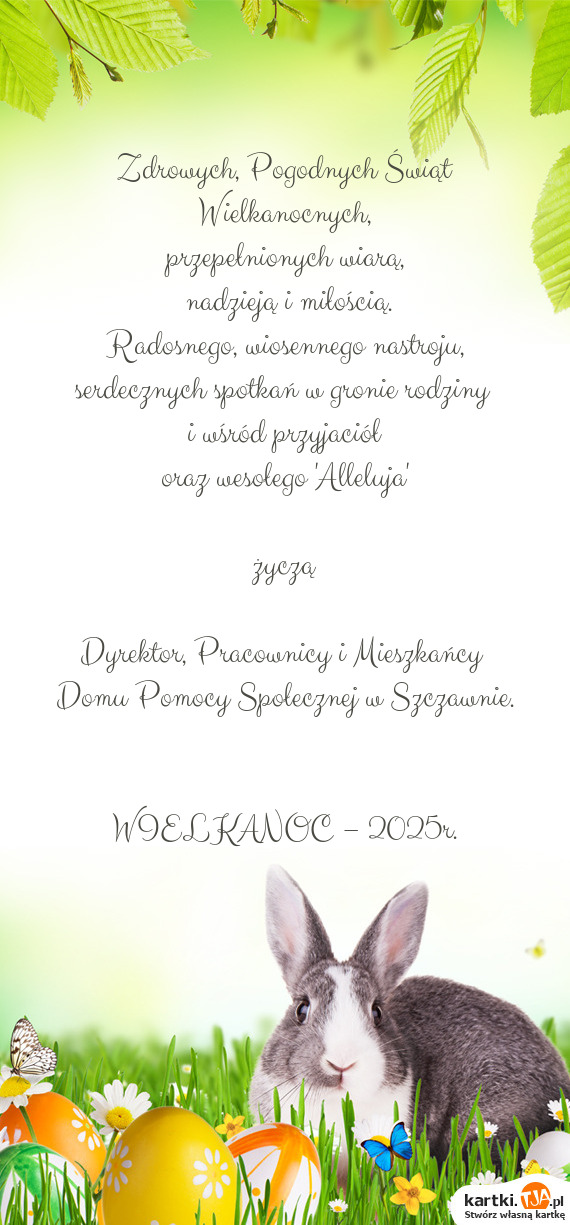 Zdrowych, Pogodnych Świąt
Wielkanocnych,
przepełnionych wiarą,
nadzieją i miłością.
Radosnego, wiosennego nastroju,
serdecznych spotkań w gronie rodziny
i wśród przyjaciół
oraz wesołego 'Alleluja'
życzą
Dyrektor, Pracownicy i Mieszkańcy
Domu Pomocy Społecznej w Szczawnie.
WIELKANOC – 2025r.
kartki.TJA.pl
Stwórz własną kartkę